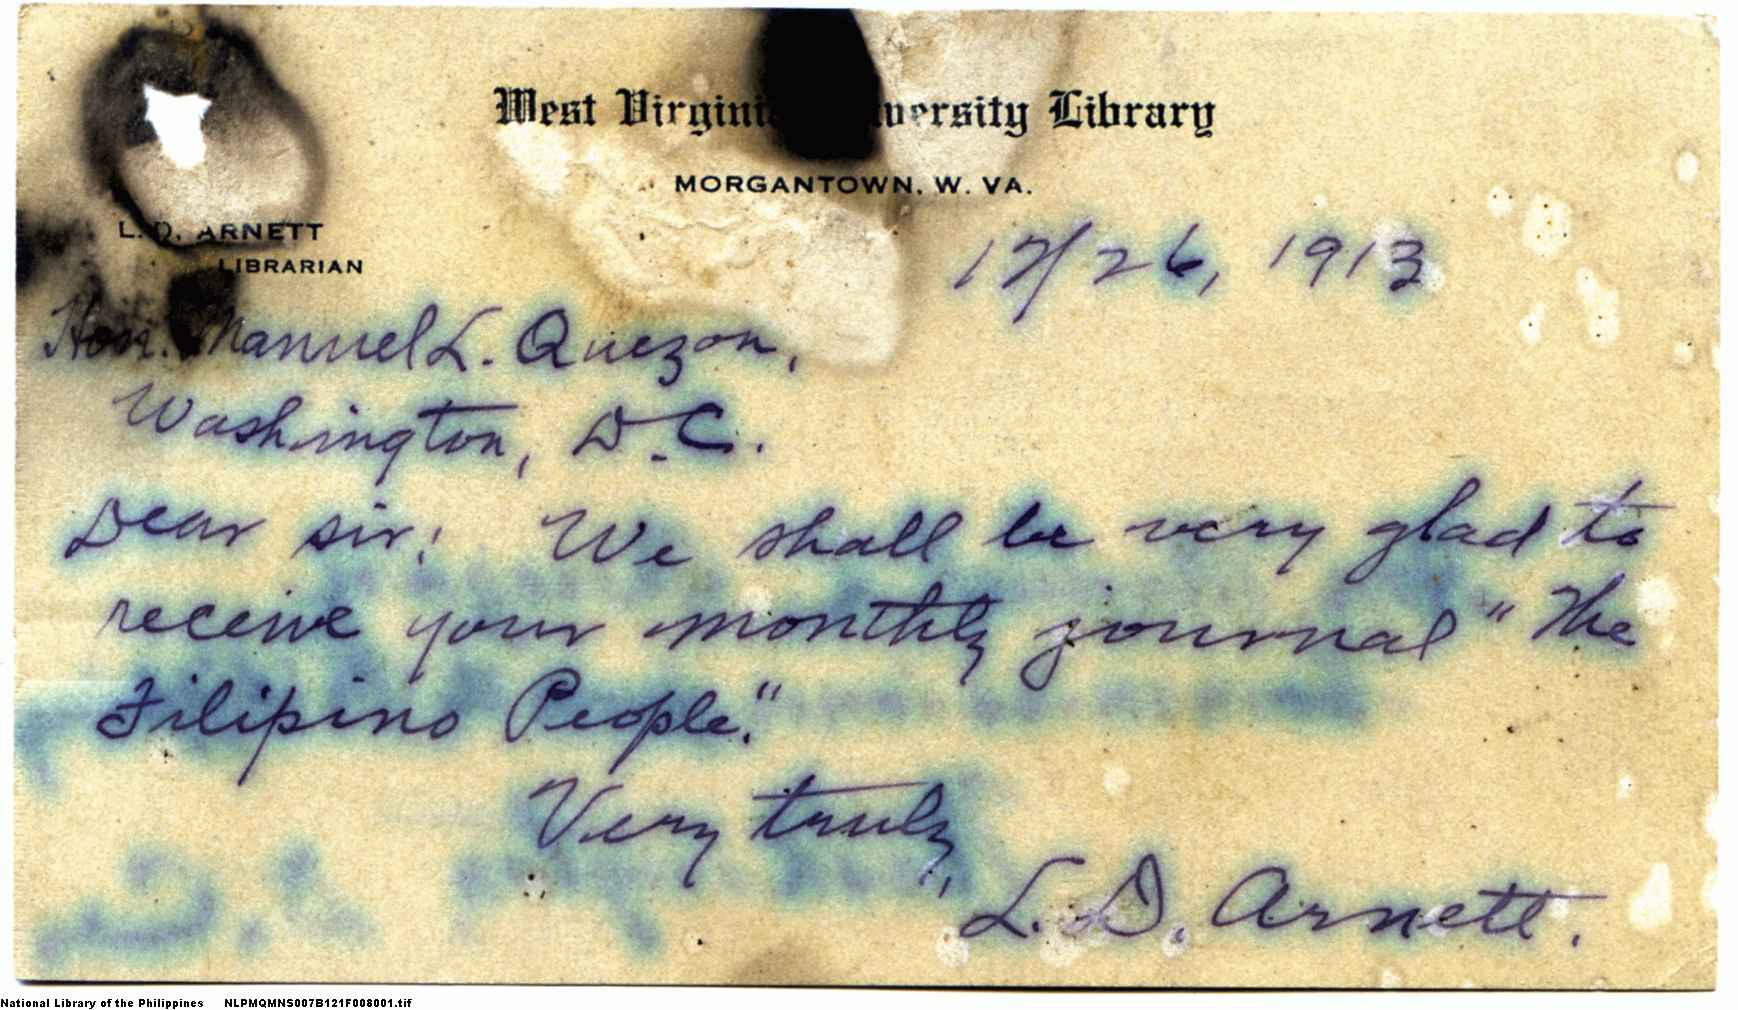 West Virginia University Library
MORGANTOWN, W. VA.
L. D. ARNETT
LIBRARIAN
12/26, 1913
Hon. Manuel L. Quezon,
Washington, D.C.
Dear sir: We shall be very glad to
receive your monthly journal "The
Filipino People."
Very truly,
L. D. Arnett.
National Library of the Philippines NLPMQMNS007B121F008001.tif